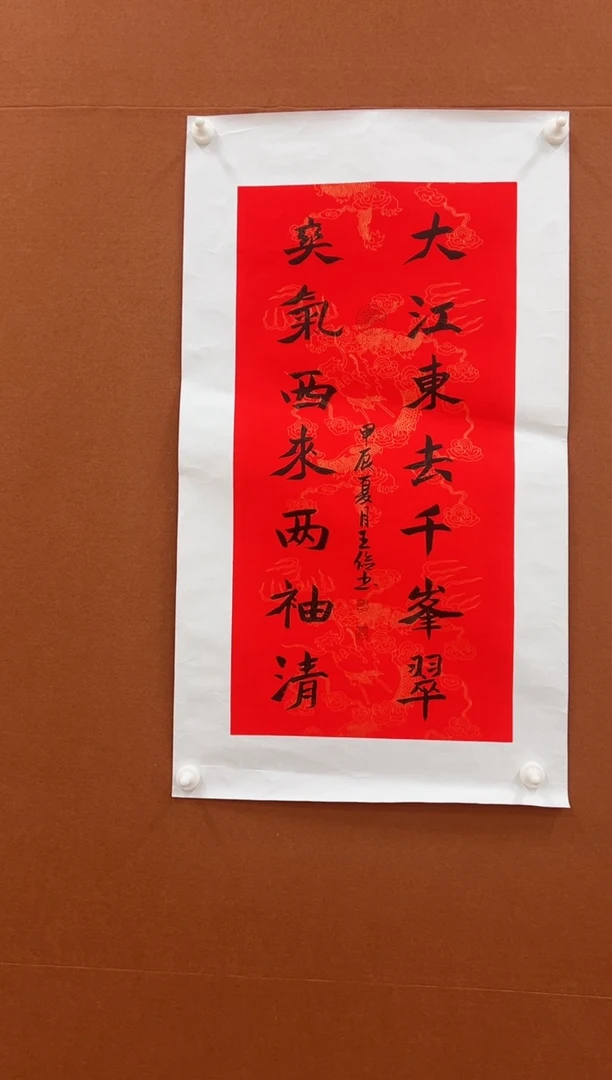 大江東去千峯翠
爽氣西來两袖清
甲辰夏月王信书